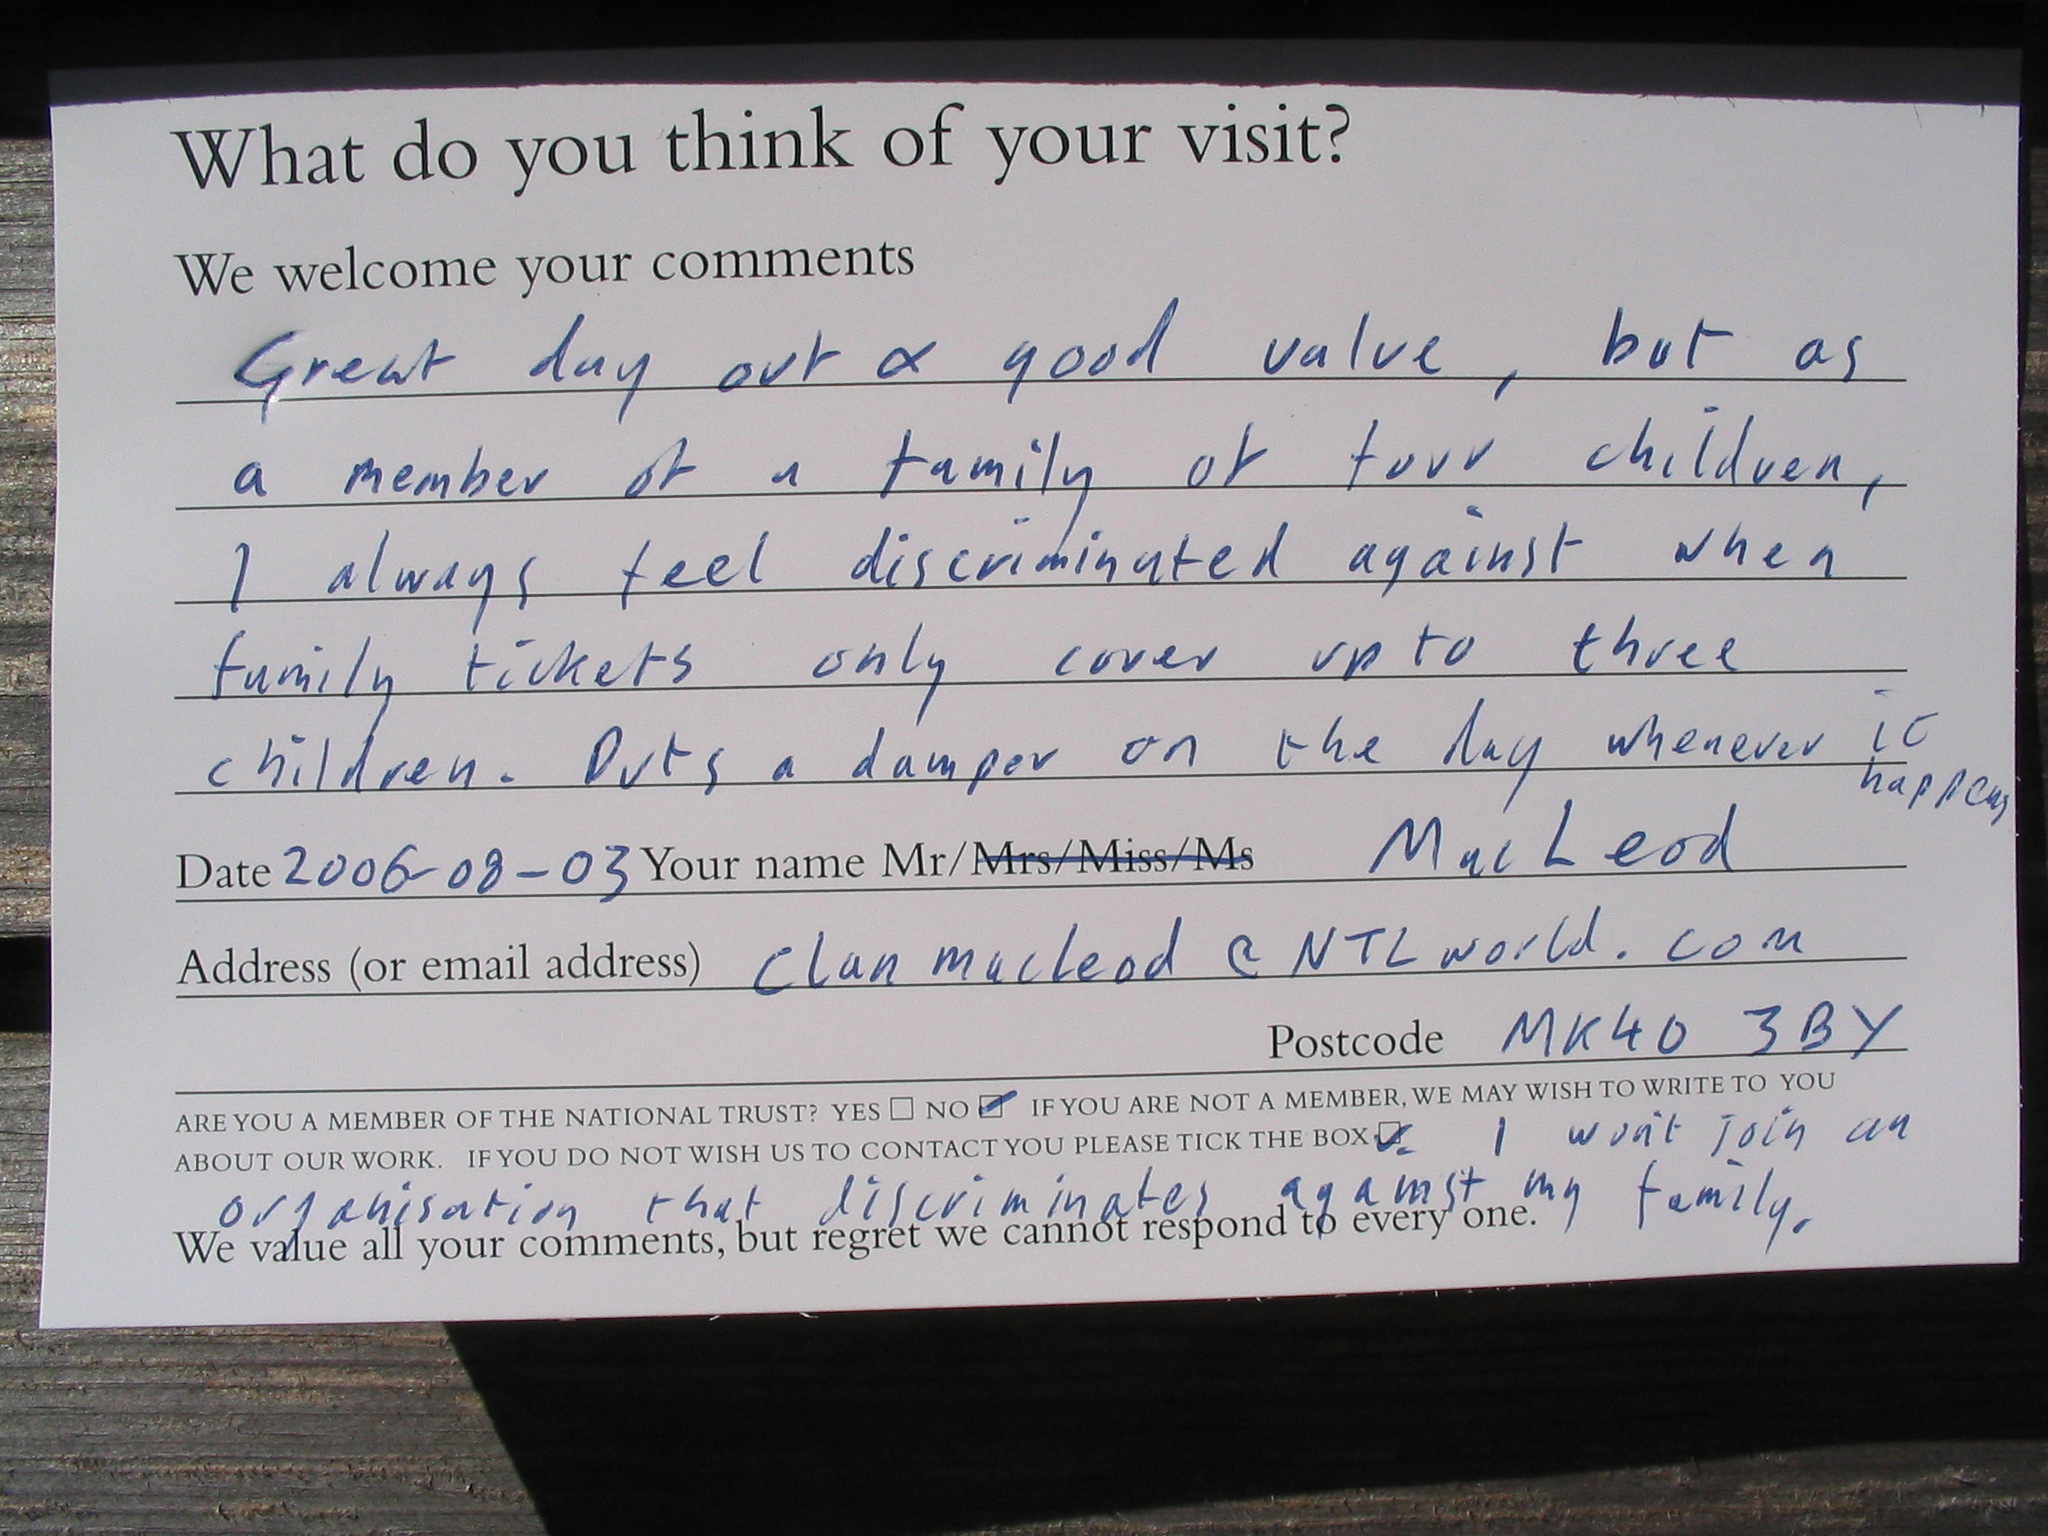 What do you think of your visit?
We welcome your comments
Great day out & good value, but as
a member of a family of four children,
I always feel discriminated against when
family tickets only cover up to three
children. Puts a damper on the day whenever it
happens
Date 2006-08-03 Your name Mr/Mrs/Miss/Ms MacLeod
Address (or email address) Clanmacleod@NTLworld.com
Postcode MK40 3BY
ARE YOU A MEMBER OF THE NATIONAL TRUST? YES ☐ NO ☑ IF YOU ARE NOT A MEMBER, WE MAY WISH TO WRITE TO YOU
ABOUT OUR WORK. IF YOU DO NOT WISH US TO CONTACT YOU PLEASE TICK THE BOX ☑. I won't join an
organisation that discriminates against my family.
We value all your comments, but regret we cannot respond to every one.